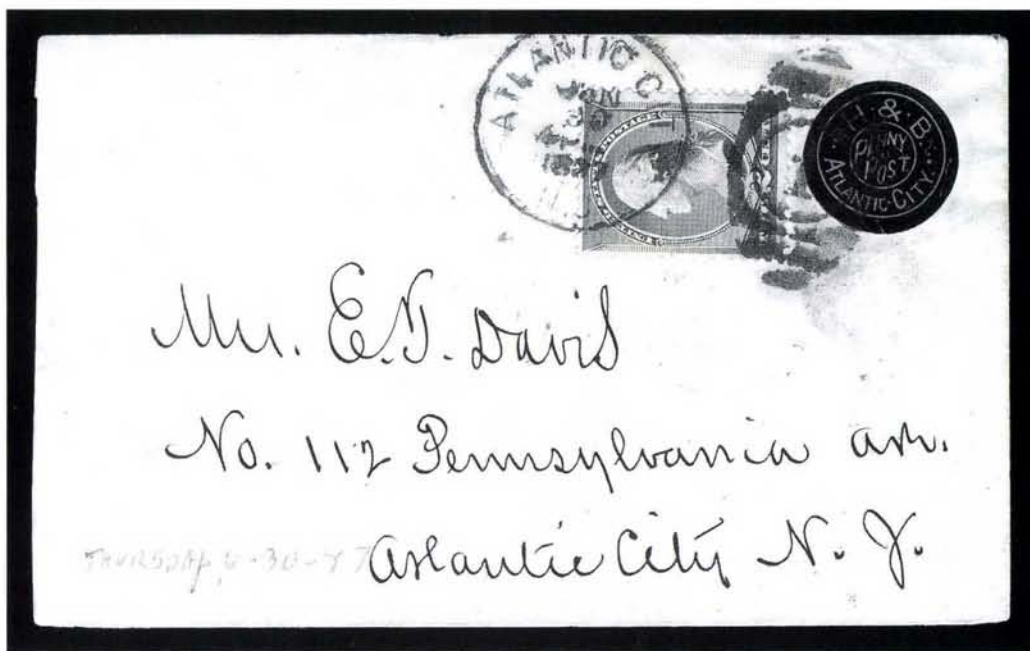 ATLANTIC C
H. & B.
PENNY
POST
ATLANTIC-CITY.
POSTAGE
Mr. E.T. Davis
No. 112 Pennsylvania av.
Atlantic City N. J.
THURSDAY, 6-30-87